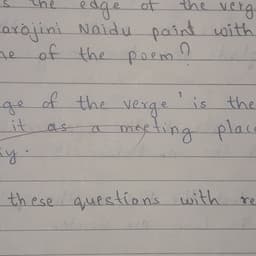 the edge of the verg
arojini Naidu paint with
of the poem?
ge of the verge' is the
it as a meeting place
these questions with re